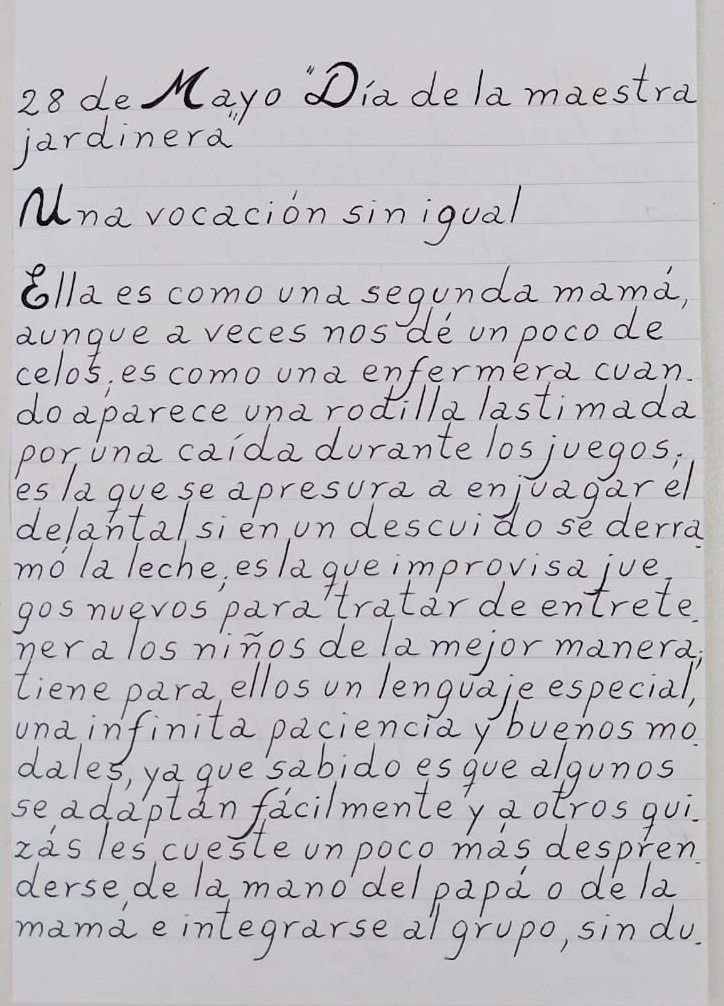 28 de Mayo "Día de la maestra
jardinera"
Una vocación sin igual
Ella es como una segunda mamá,
aunque a veces nos dé un poco de
celos; es como una enfermera cuan-
do aparece una rodilla lastimada
por una caída durante los juegos;
es la que se apresura a enjuagar el
delantal si en un descuido se derra-
mó la leche; es la que improvisa jue-
gos nuevos para tratar de entrete-
ner a los niños de la mejor manera;
tiene para ellos un lenguaje especial,
una infinita paciencia y buenos mo-
dales, ya que sabido es que algunos
se adaptan fácilmente y a otros qui-
zás les cueste un poco más despren-
derse de la mano del papá o de la
mamá e integrarse al grupo, sin du-